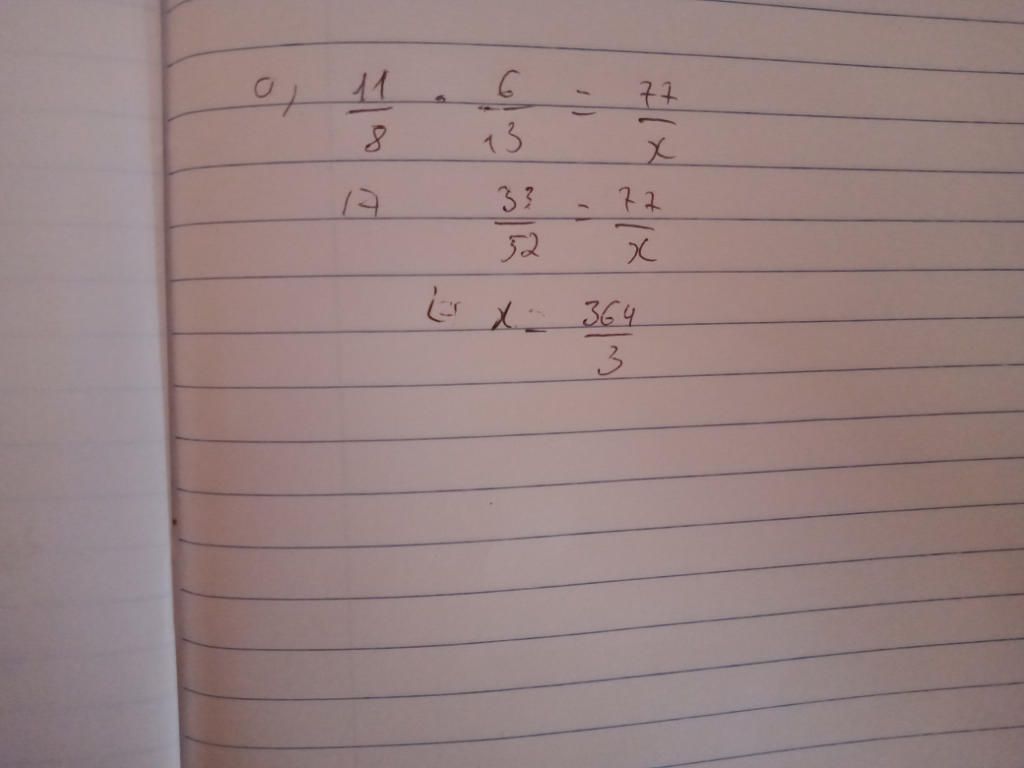 a, 11/8 . 6/13 = 77/x
33/52 = 77/x
x = 364/3